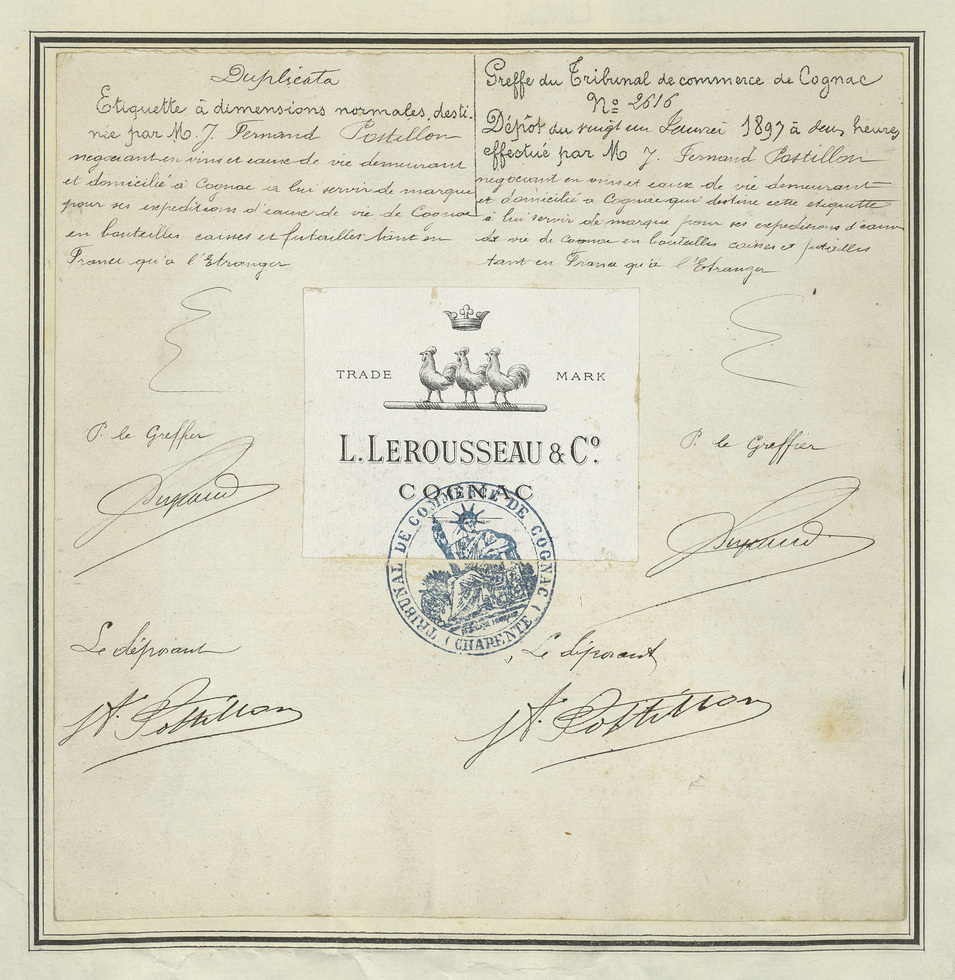 Duplicata
Etiquette à dimensions normales, desti-
née par M. J. Fernand Postillon
negociant en vins et eaux de vie demeurant
et domicilié à Cognac à lui servir de marque
pour ses expeditions d'eaux de vie de Cognac
en bouteilles caisses et futailles tant en
France qu'à l'Etranger
Greffe du Tribunal de commerce de Cognac
No 2616
Dépôt du vingt un Janvier 1897 à deux heures
effectué par M J. Fernand Postillon
negociant en vins et eaux de vie demeurant
et domicilié à Cognac qui destine cette etiquette
à lui servir de marque pour ses expeditions d'eaux
de vie de Cognac en bouteilles caisses et futailles
tant en France qu'à l'Etranger
TRADE MARK
L. LEROUSSEAU & Co.
COGNAC
P. le Greffier
P. le Greffier
TRIBUNAL DE COMMERCE DE COGNAC (CHARENTE)
Le déposant
Le déposant
Postillon
Postillon